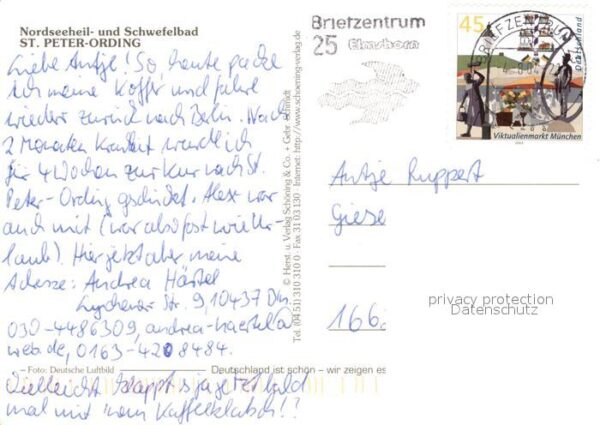 Nordseeheil- und Schwefelbad
ST. PETER-ORDING
Liebe Antje! So, heute packe
ich meine Koffer und fahre
wieder zurück nach Berlin. Nach
2 Monaten Krankheit wurde ich
für 4 Wochen zur Kur nach St.
Peter-Ording geschickt. Alex war
auch mit (war also fast wie Ur-
laub). Hier jetzt aber meine
Adresse: Andrea Härtel
Str. 9, 10437 Bln.
© Herst. u. Verlag Schöning & Co. + Gebr. Schmidt
Tel. (04 51) 310 310 0 · Fax 31 03 130 · Internet: http://www.schoening-verlag.de
– Foto: Deutsche Luftbild
Deutschland ist schön – wir zeigen es
Vielleicht klappt's ja jetzt bald
mal mit 'nem Kaffeeklatsch!?
Briefzentrum
25 Elmshorn
45
Deutschland
BRIEFZENTRUM
Viktualienmarkt München
Antje Ruppert
Giese
166
privacy protection
Datenschutz